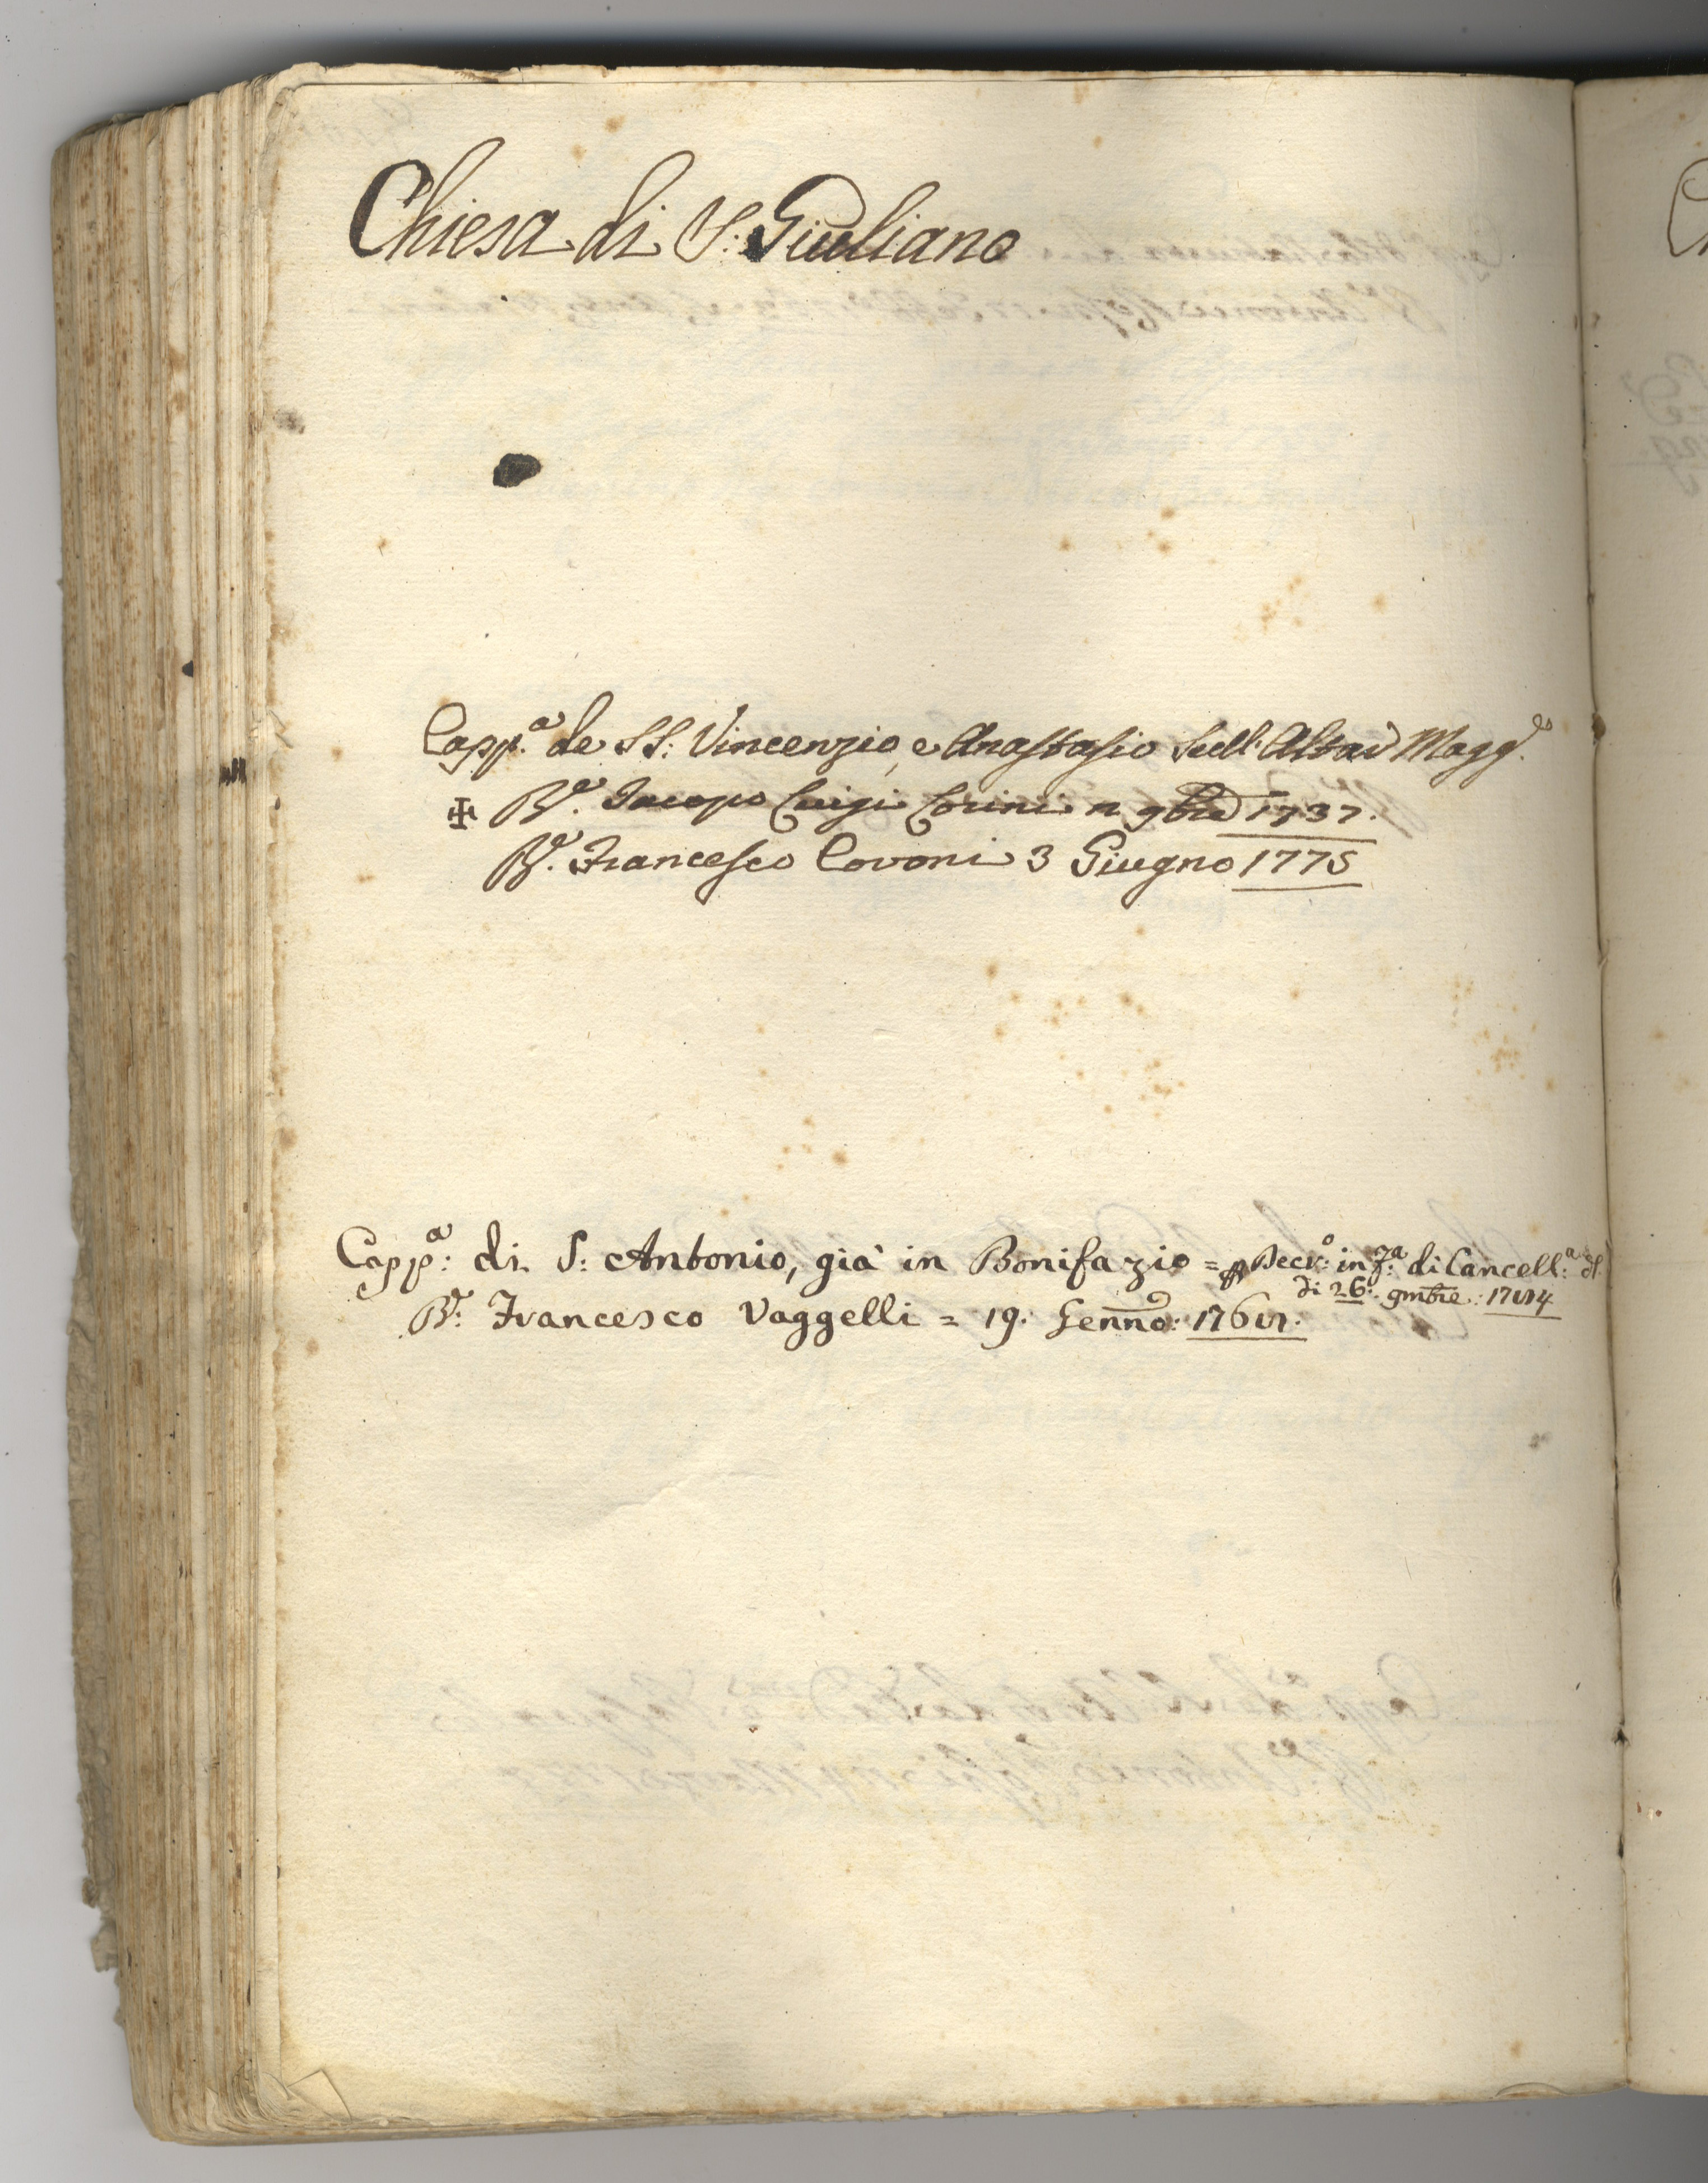 Chiesa di S: Giuliano
Capp.ª de SS: Vincenzio, e Anastasio Altar Magg.e
✠ Rr. Jacopo Luigi Corini 9bre 1737.
Rr. Francesco Covoni 3 Giugno 1775
Capp:ª di S: Antonio, già in Bonifazio = Decr:o in di Cancell:ª
di 26: 9mbre:
Rr: Francesco Vaggelli = 19. Genno: